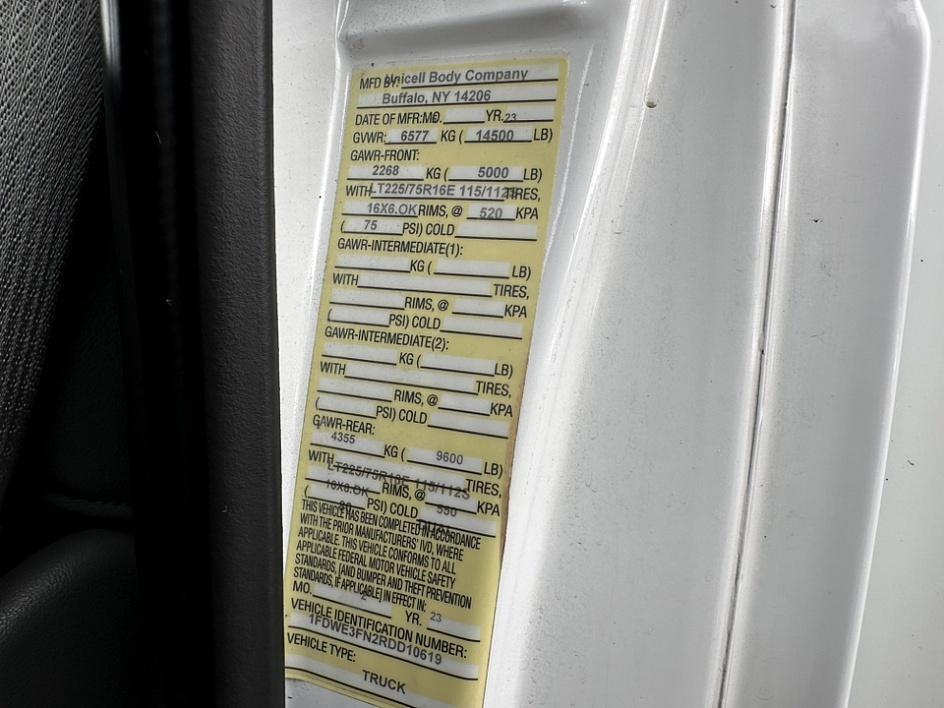 MFD BY: Unicell Body Company
Buffalo, NY 14206
DATE OF MFR: MO. YR. 23
GVWR: 6577 KG ( 14500 LB)
GAWR-FRONT:
2268 KG ( 5000 LB)
WITH LT225/75R16E 115/112S TIRES,
16X6.OK RIMS, @ 520 KPA
( 75 PSI) COLD
GAWR-INTERMEDIATE(1):
KG ( LB)
WITH TIRES,
RIMS, @ KPA
( PSI) COLD
GAWR-INTERMEDIATE(2):
KG ( LB)
WITH TIRES,
RIMS, @ KPA
( PSI) COLD
GAWR-REAR:
4355 KG ( 9600 LB)
WITH LT225/75R16E 115/112S TIRES,
16X6.OK RIMS, @ 550 KPA
( 80 PSI) COLD
THIS VEHICLE HAS BEEN COMPLETED IN ACCORDANCE
WITH THE PRIOR MANUFACTURERS' IVD, WHERE
APPLICABLE. THIS VEHICLE CONFORMS TO ALL
APPLICABLE FEDERAL MOTOR VEHICLE SAFETY
STANDARDS, [AND BUMPER AND THEFT PREVENTION
STANDARDS, IF APPLICABLE] IN EFFECT IN:
MO. 2 YR. 23
VEHICLE IDENTIFICATION NUMBER:
1FDWE3FN2RDD10619
VEHICLE TYPE:
TRUCK